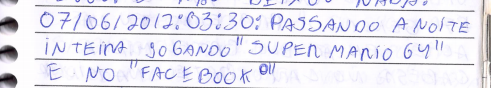 07/06/2012:03:30: PASSANDO A NOITE
INTEIRA JOGANDO "SUPER MARIO 64"
E NO "FACEBOOK"